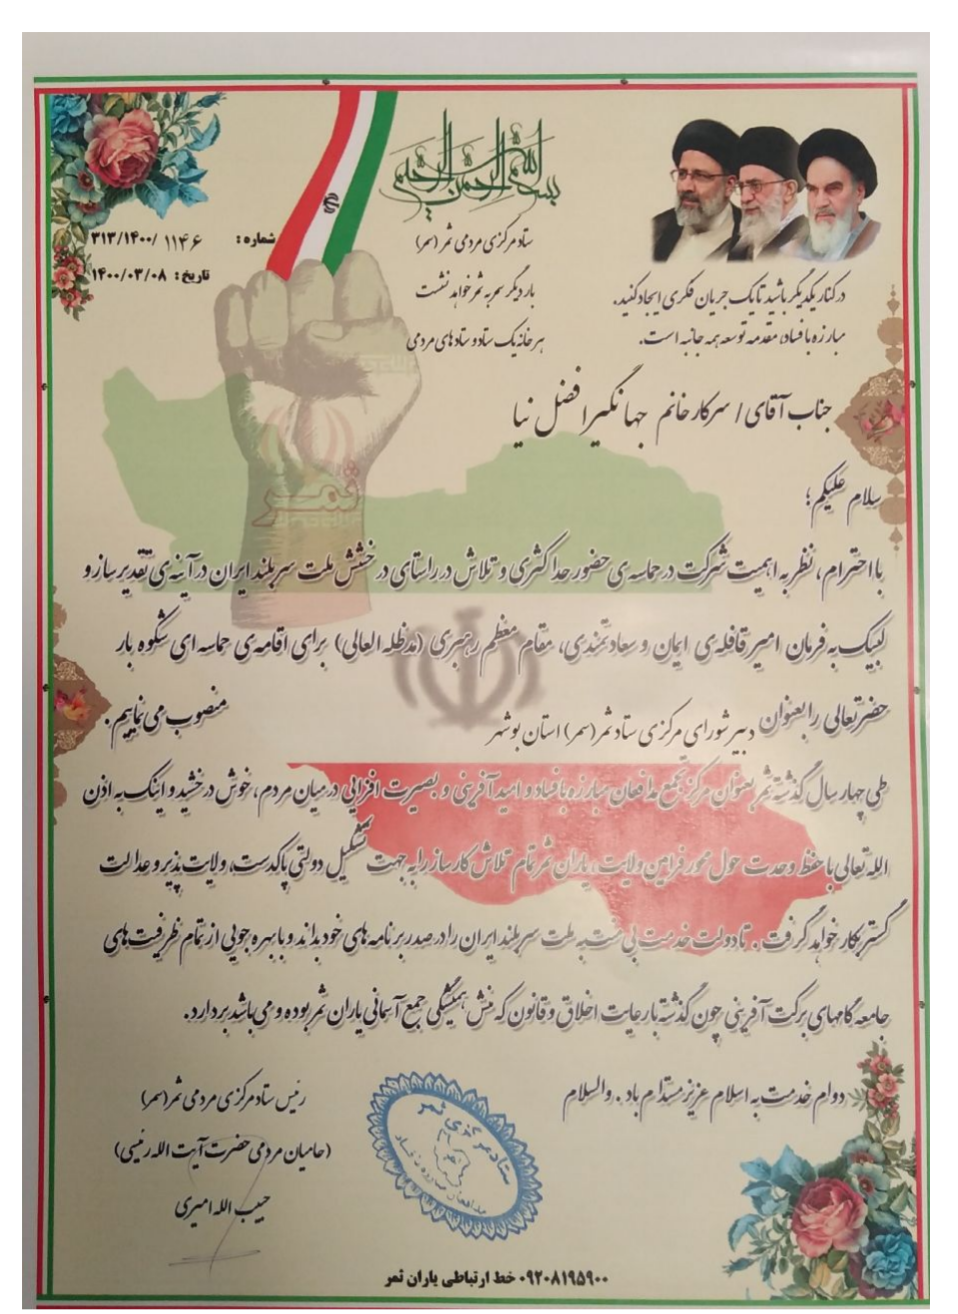 بسم الله الرحمن الرحیم
شماره: ۱۱۴۶ /۳۱۳/۱۴۰۰
تاریخ: ۱۴۰۰/۰۳/۰۸
ستاد مرکزی مردمی ثمر (سمر)
بار دیگر سمر به ثمر خواهد نشست
هر خانه یک ستاد و ستادهای مردمی
در کنار یکدیگر باشید تا یک جریان فکری ایجاد کنید.
مبارزه با فساد، مقدمه توسعه همه جانبه است.
جناب آقای / سرکار خانم جهانگیر افضل نیا
سلام علیکم؛
با احترام، نظر به اهمیت شرکت در حماسه ی حضور حداکثری و تلاش در راستای درخشش ملت سربلند ایران در آینه ی تقدیر ساز و
لبیک به فرمان امیر قافله ی ایمان و سعادتمندی، مقام معظم رهبری (مدظله العالی) برای اقامه ی حماسه ای شکوه بار
حضرتعالی را بعنوان دبیر شورای مرکزی ستاد ثمر (سمر) استان بوشهر منصوب می نماییم.
طی چهار سال گذشته ثمر بعنوان مرکز تجمع مدافعان مبارزه با فساد و امید آفرینی و بصیرت افزایی در میان مردم، خوش درخشید و اینک به اذن
الله تعالی با حفظ وحدت حول محور فرامین ولایت، یاران ثمر تمام تلاش کارساز را به جهت تشکیل دولتی پاکدست، ولایت پذیر و عدالت
گستر بکار خواهد گرفت. تا دولت خدمت بی منت به ملت سربلند ایران را در صدر برنامه های خود بداند و با بهره جویی از تمام ظرفیت های
جامعه گامهای برکت آفرینی چون گذشته با رعایت اخلاق و قانون که منش همیشگی جمع آسمانی یاران ثمر بوده و می باشد بردارد.
دوام خدمت به اسلام عزیز مستدام باد. والسلام
رئیس ستاد مرکزی مردمی ثمر (سمر)
(حامیان مردمی حضرت آیت الله رئیسی)
حبیب الله امیری
ستاد مرکزی ثمر
مدافعان مبارزه با فساد
ثمر
۰۹۲۰۸۱۹۵۹۰۰ خط ارتباطی یاران ثمر